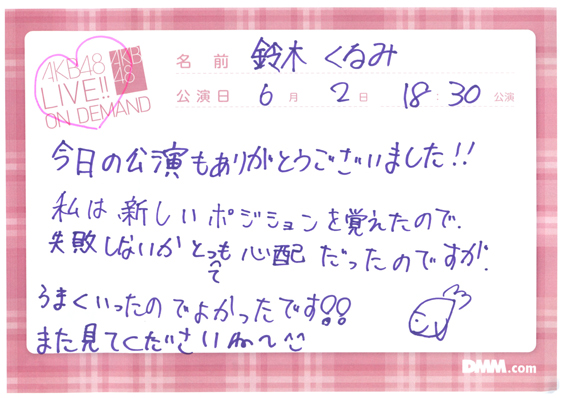 AKB48
LIVE!!
ON DEMAND
AKB
48
名前 鈴木 くるみ
公演日 6月 2日 18:30 公演
今日の公演もありがとうございました!!
私は新しいポジションを覚えたので、
失敗しないかとっても心配だったのですが、
うまくいったのでよかったです!!
また見てくださいね〜
DMM.com